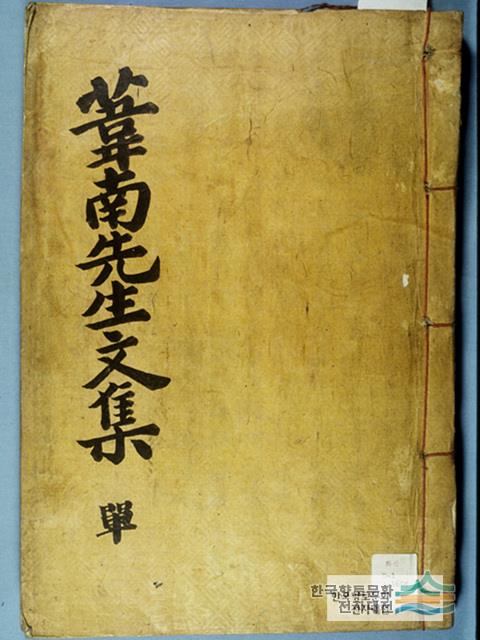 葦南先生文集
單
한국향토문화
전자대전